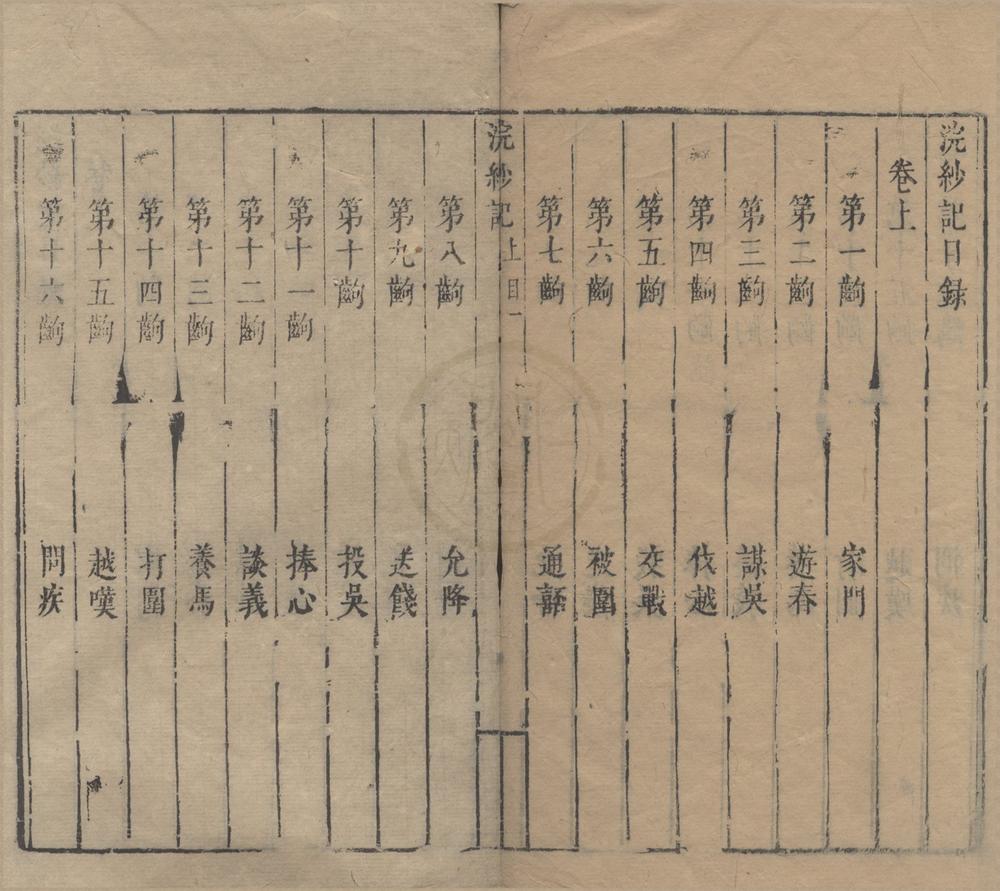 浣紗記目録
卷上
第一齣 家門
第二齣 遊春
第三齣 謀吳
第四齣 伐越
第五齣 交戰
第六齣 被圍
第七齣 通嚭
浣紗記 上目 一
第八齣 允降
第九齣 送餞
第十齣 投吳
第十一齣 捧心
第十二齣 談義
第十三齣 養馬
第十四齣 打圍
第十五齣 越嘆
第十六齣 問疾